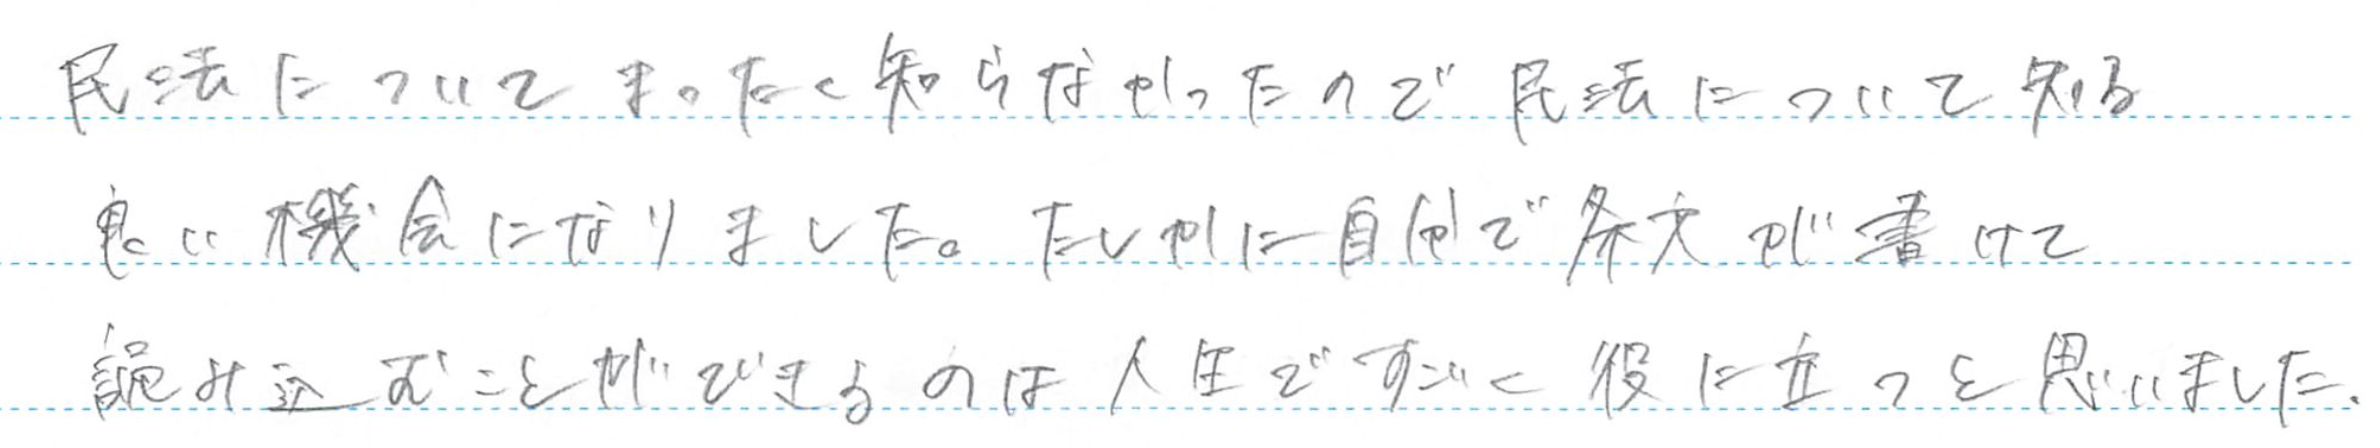 民法についてまったく知らなかったので民法について知る
良い機会になりました。たしかに自分で条文が書けて
読み込むことができるのは人生ですごく役に立つと思いました.